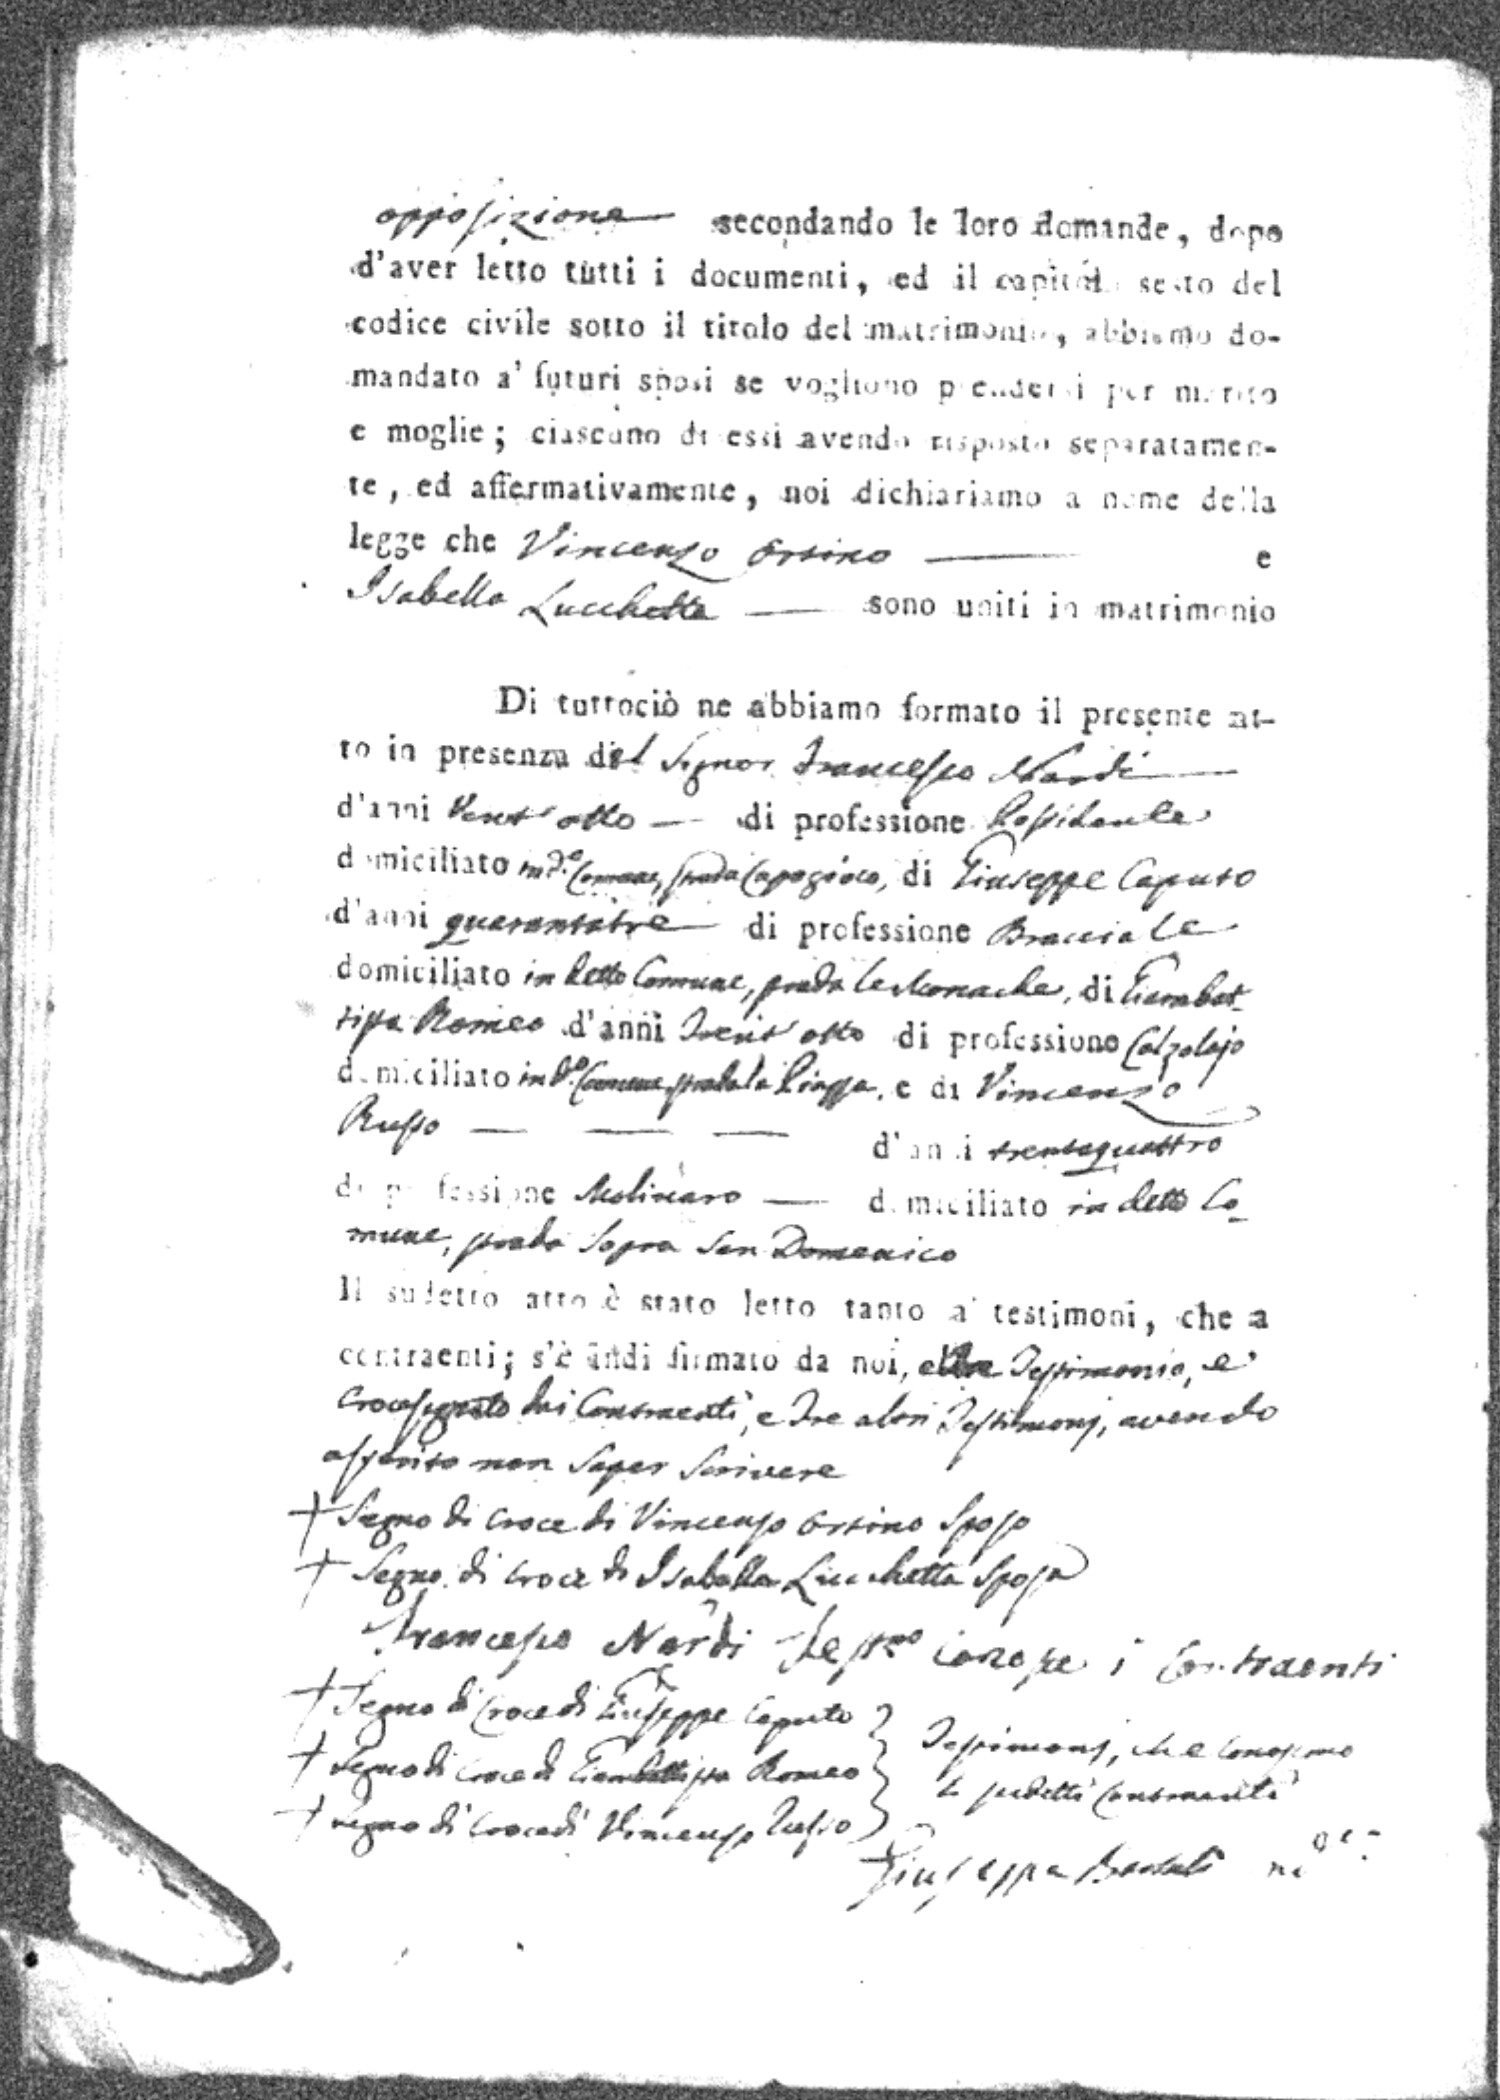 opposizione secondando le loro domande, dopo
d'aver letto tutti i documenti, ed il capitolo sesto del
codice civile sotto il titolo del matrimonio, abbiamo do-
mandato a' futuri sposi se vogliono prendersi per marito
e moglie; ciascuno di essi avendo risposto separatamen-
te, ed affermativamente, noi dichiariamo a nome della
legge che Vincenzo Orsino e
Isabella Lucchetta sono uniti in matrimonio
Di tuttociò ne abbiamo formato il presente at-
to in presenza del Signor Francesco Nardi
d'anni Vent'otto di professione Possidente
domiciliato in d.o Comune, strada Capogioco, di Giuseppe Caputo
d'anni quarantatre di professione Bracciale
domiciliato in detto Comune, strada le Monache, di Giambat-
tista Romeo d'anni Trent'otto di professione Calzolajo
domiciliato in d.o Comune strada la Piazza, e di Vincenzo
Russo d'anni trentaquattro
di professione Molinaro domiciliato in detto Co-
mune, strada Sopra San Domenico
Il sudetto atto è stato letto tanto a' testimoni, che a
contraenti; s'è indi firmato da noi, Testimonio, e
Crocesegnato dai Contraenti, e Tre altri Testimonj, avendo
asserito non saper Scrivere
+ Segno di Croce di Vincenzo Orsino Sposo
+ Segno di Croce di Isabella Lucchetta Sposa
Francesco Nardi Test.no Conosce i Contraenti
+ Segno di Croce di Giuseppe Caputo
+ Segno di Croce di Giambattista Romeo } Testimonj, che Conoscono
+ Segno di Croce di Vincenzo Russo i sudetti Contraenti
Giuseppe